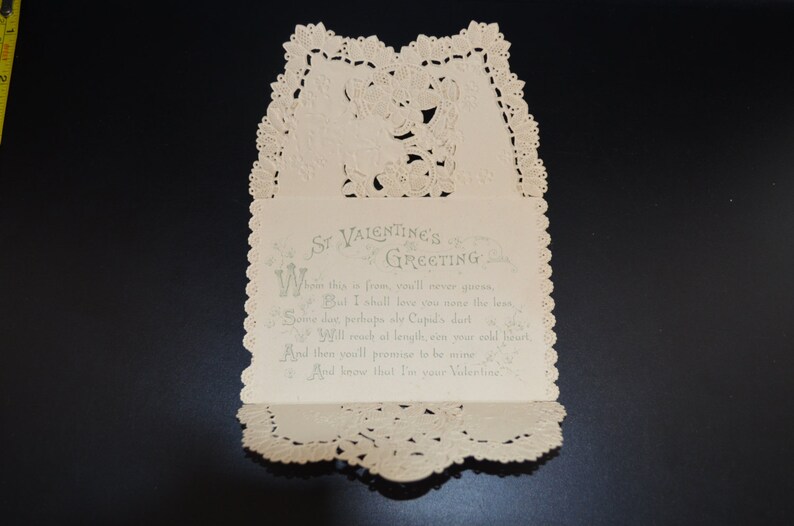 ST VALENTINE'S
GREETING
Whom this is from, you'll never guess,
But I shall love you none the less,
Some day, perhaps sly Cupid's dart
Will reach at length, e'en your cold heart,
And then you'll promise to be mine
And know that I'm your Valentine.
1
2